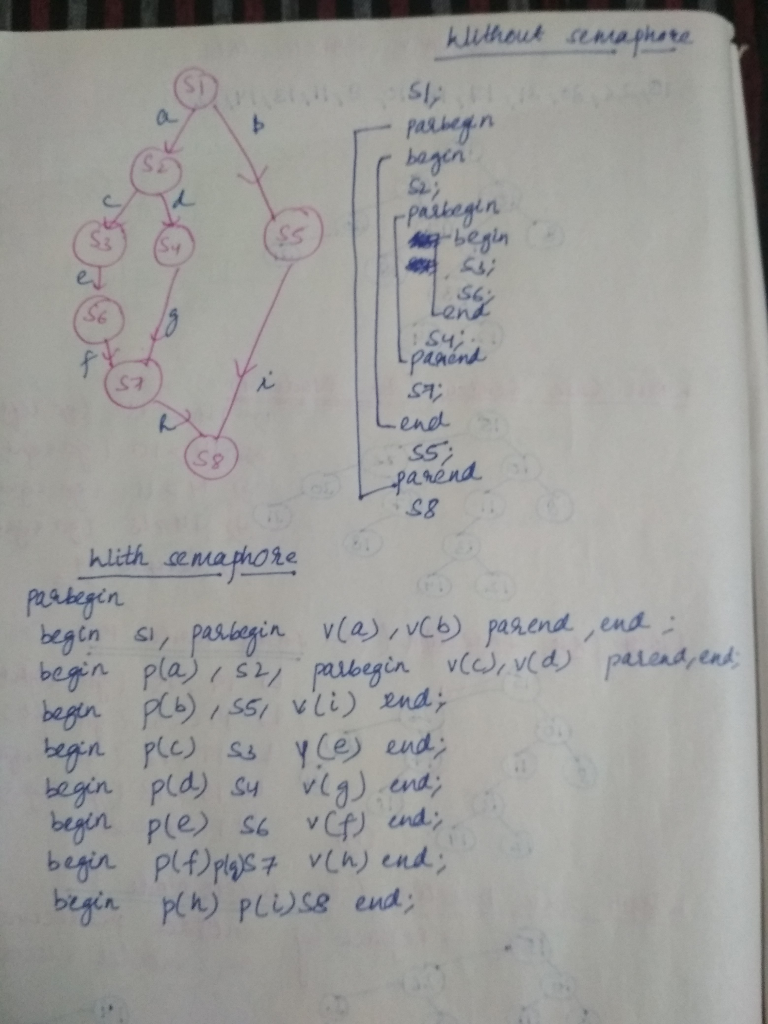 Without semaphore
S1
a
b
S2
c
d
S3
S4
S5
e
S6
g
f
S7
i
h
S8
S1;
parbegin
begin
S2;
parbegin
begin
S3;
S6;
end
S4;
parend
S7;
end
S5;
parend
S8
With semaphore
parbegin
begin S1, parbegin v(a), v(b) parend, end ;
begin p(a), S2, parbegin v(c), v(d) parend, end;
begin p(b), S5, v(i) end;
begin p(c) S3 v(e) end;
begin p(d) S4 v(g) end;
begin p(e) S6 v(f) end;
begin p(f) p(g) S7 v(h) end;
begin p(h) p(i) S8 end;